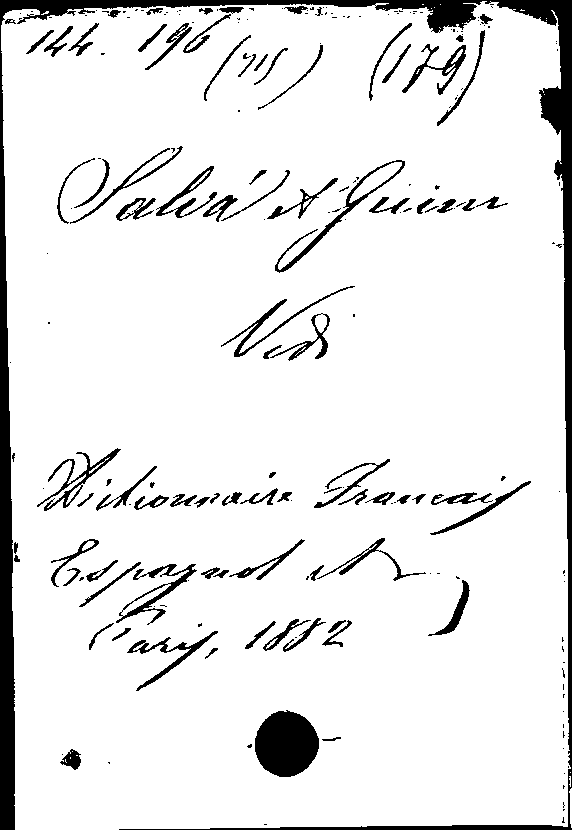 144. 196 (715) (179)
Salvá et Guim
Vedi
Dictionnaire Francais
Espagnol et
Paris, 1882